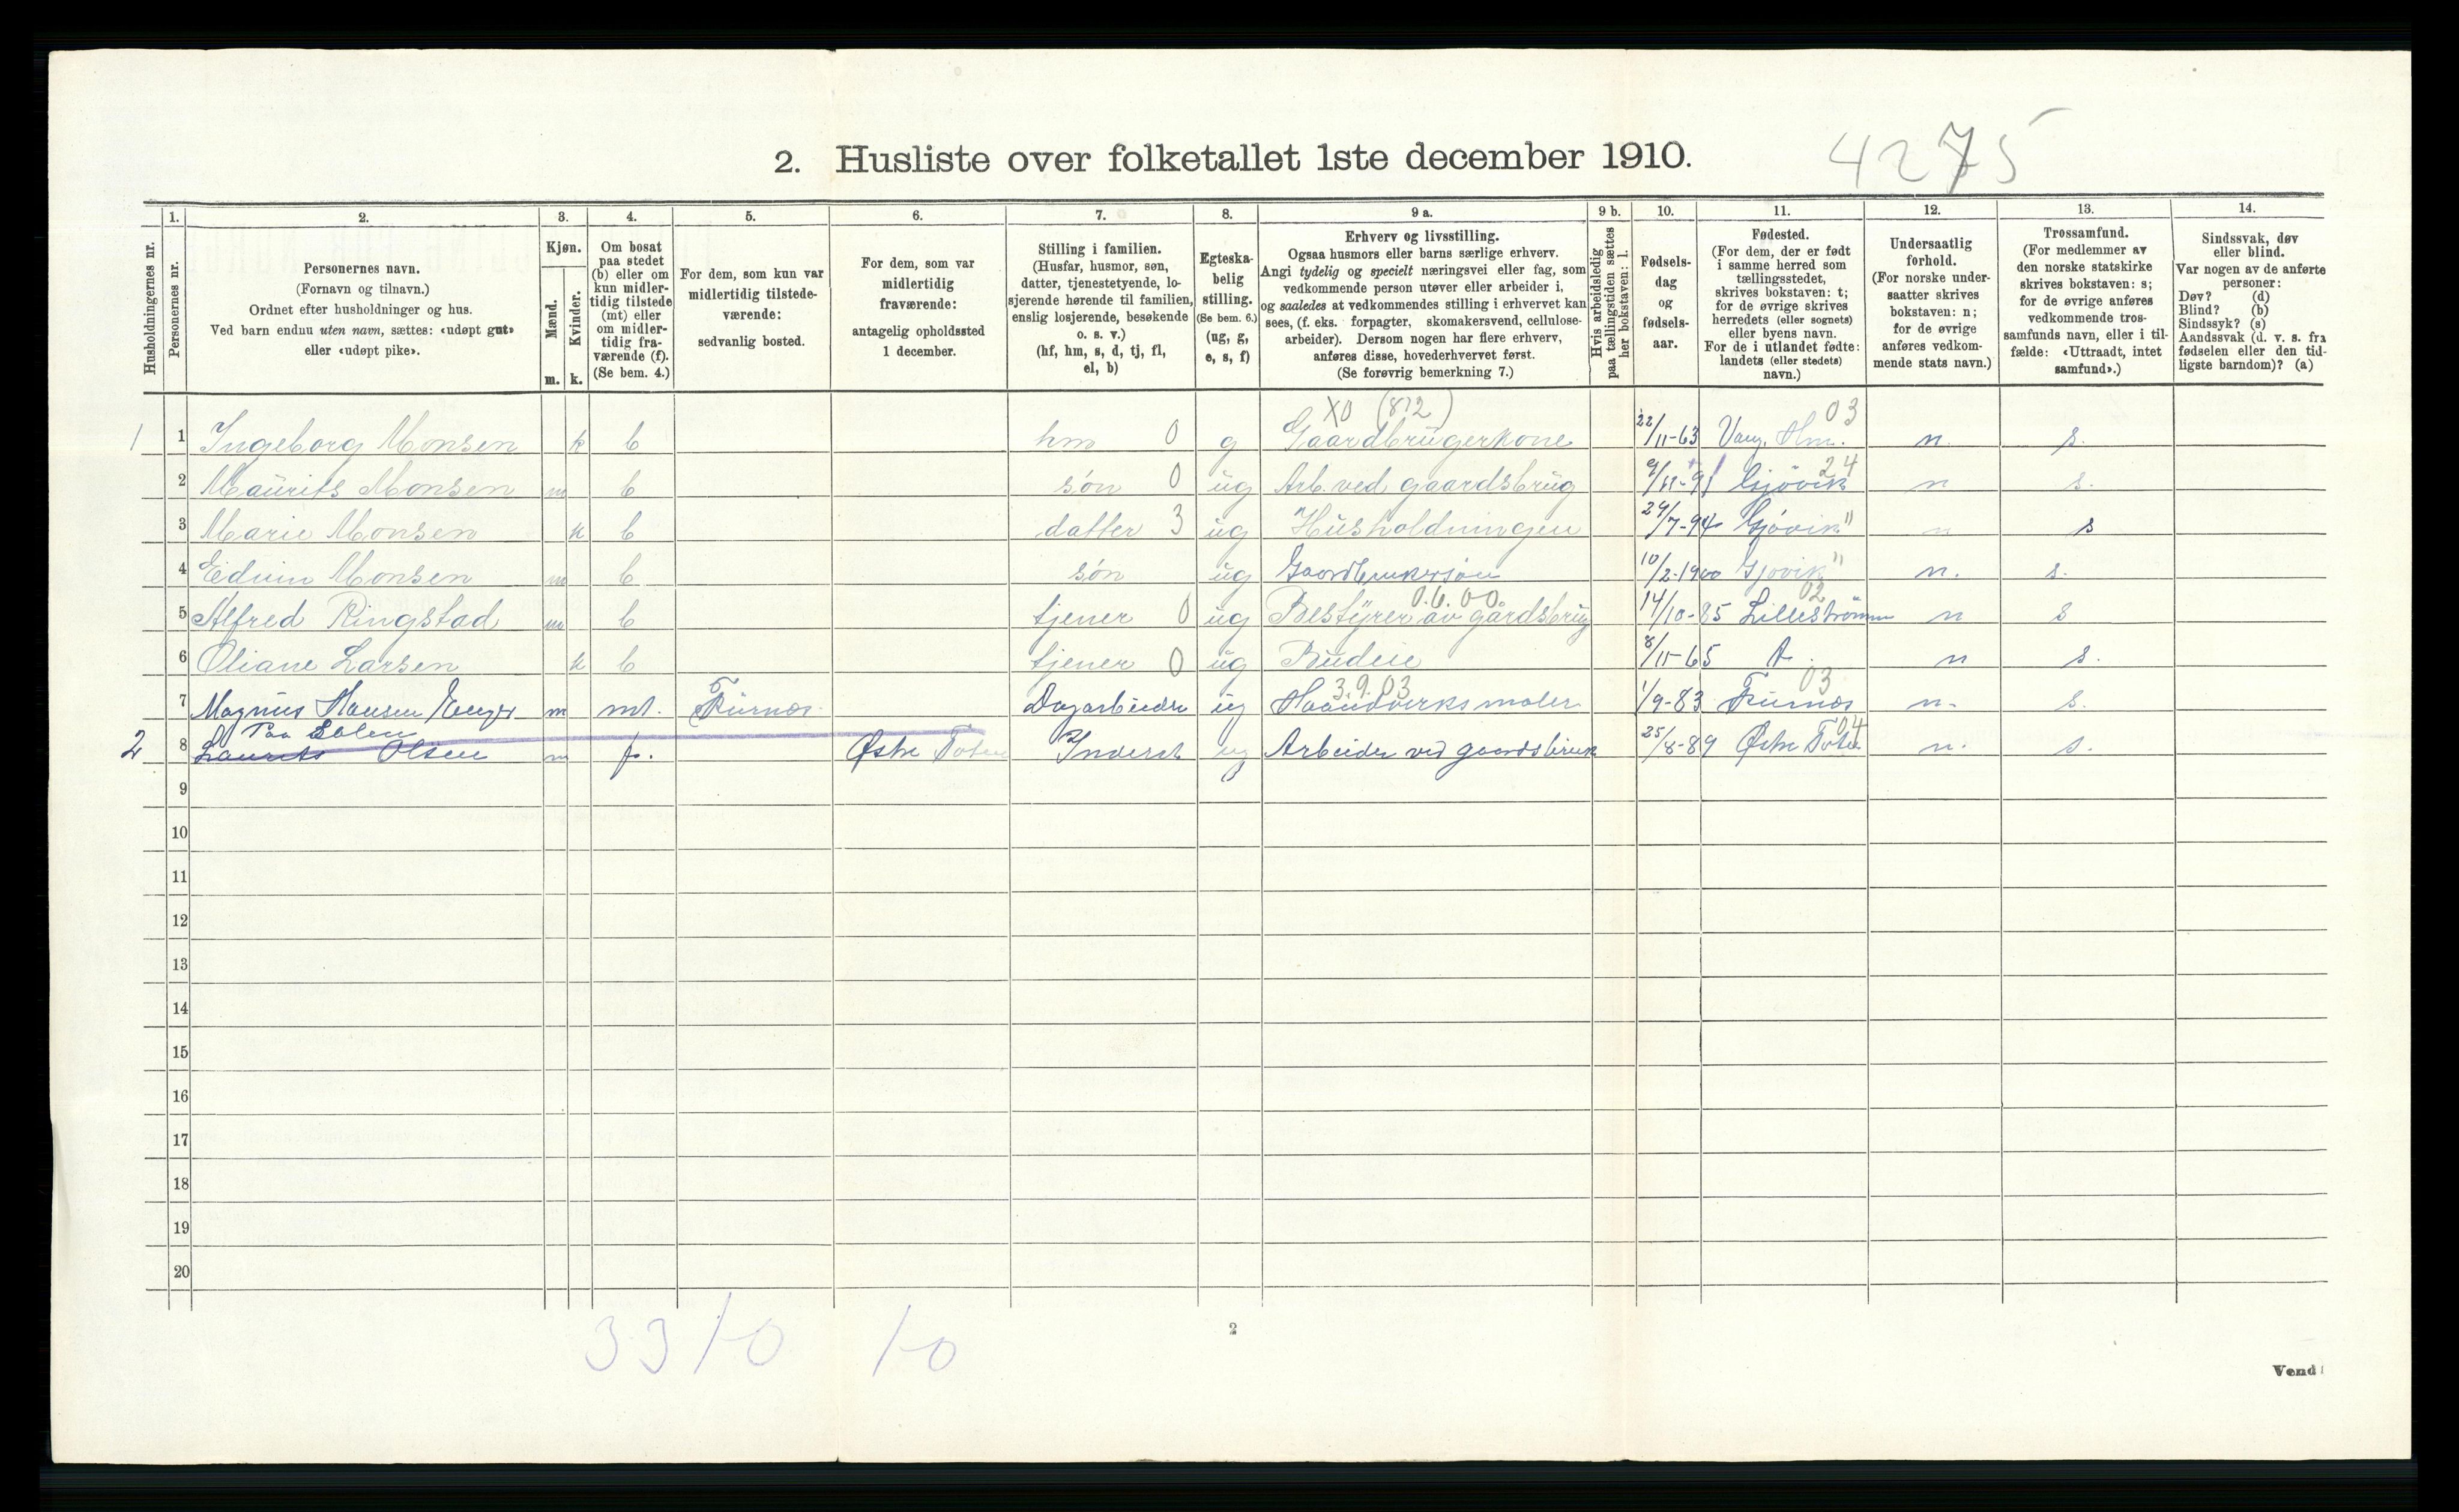 2. Husliste over folketallet 1ste december 1910.
4275
Husholdningernes nr.
1.
Personernes nr.
2.
Personernes navn.
(Fornavn og tilnavn.)
Ordnet efter husholdninger og hus.
Ved barn endnu uten navn, sættes: «udøpt gut»
eller «udøpt pike».
3.
Kjøn.
Mænd.
Kvinder.
m. k.
4.
Om bosat
paa stedet
(b) eller om
kun midler-
tidig tilstede
(mt) eller
om midler-
tidig fra-
værende (f).
(Se bem. 4.)
5.
For dem, som kun var
midlertidig tilstede-
værende:
sedvanlig bosted.
6.
For dem, som var
midlertidig
fraværende:
antagelig opholdssted
1 december.
7.
Stilling i familien.
(Husfar, husmor, søn,
datter, tjenestetyende, lo-
sjerende hørende til familien,
enslig losjerende, besøkende
o. s. v.)
(hf, hm, s, d, tj, fl,
el, b)
8.
Egteska-
belig
stilling.
(Se bem. 6.)
(ug, g,
e, s, f)
9 a.
Erhverv og livsstilling.
Ogsaa husmors eller barns særlige erhverv.
Angi tydelig og specielt næringsvei eller fag, som
vedkommende person utøver eller arbeider i,
og saaledes at vedkommendes stilling i erhvervet kan
sees, (f. eks. forpagter, skomakersvend, cellulose-
arbeider). Dersom nogen har flere erhverv,
anføres disse, hovederhvervet først.
(Se forøvrig bemerkning 7.)
9 b.
Hvis arbeidsledig
paa tællingstiden sættes
her bokstaven: l.
10.
Fødsels-
dag
og
fødsels-
aar.
11.
Fødested.
(For dem, der er født
i samme herred som
tællingsstedet,
skrives bokstaven: t;
for de øvrige skrives
herredets (eller sognets)
eller byens navn.
For de i utlandet fødte:
landets (eller stedets)
navn.)
12.
Undersaatlig
forhold.
(For norske under-
saatter skrives
bokstaven: n;
for de øvrige
anføres vedkom-
mende stats navn.)
13.
Trossamfund.
(For medlemmer av
den norske statskirke
skrives bokstaven: s;
for de øvrige anføres
vedkommende tros-
samfunds navn, eller i til-
fælde: «Uttraadt, intet
samfund».)
14.
Sindssvak, døv
eller blind.
Var nogen av de anførte
personer:
Døv? (d)
Blind? (b)
Sindssyk? (s)
Aandssvak (d. v. s. fra
fødselen eller den tid-
ligste barndom)? (a)
X0 (812) 03
1 1 Ingeborg Monsen k b hm 0 g Gaardbrugerkone 22/11-63 Vang. Hm. n. s.
24
2 Maurits Monsen m b søn 0 ug Arb. ved gaardsbrug 9/11-91 Gjøvik n s.
3 Marie Monsen k b datter 3 ug Husholdningen 29/7-94 Gjøvik " n s
4 Edvin Monsen m b søn ug Gaardbrukersøn 10/2-1900 Gjøvik " n. s.
0.6.00. 02
5 Alfred Ringstad m b tjener 0 ug Bestyrer av gårdsbrug 14/10-85 Lillestrømm n s
6 Oliane Larsen k b tjener 0 ug Budeie 8/11-65 t. n s.
3.9.03 03
7 Magnus Hansen Enger m mt. Furnæs Dagarbeider ug Haandverksmaler 1/9-83 Furnæs n. s.
04
2 8 Laurits Olsen m f. Østre Toten Inderst ug Arbeider ved gaardsbruk 25/8-89 Østre Toten n. s.
9
10
11
12
13
14
15
16
17
18
19
20
33 1-0 1-0
2
Vend